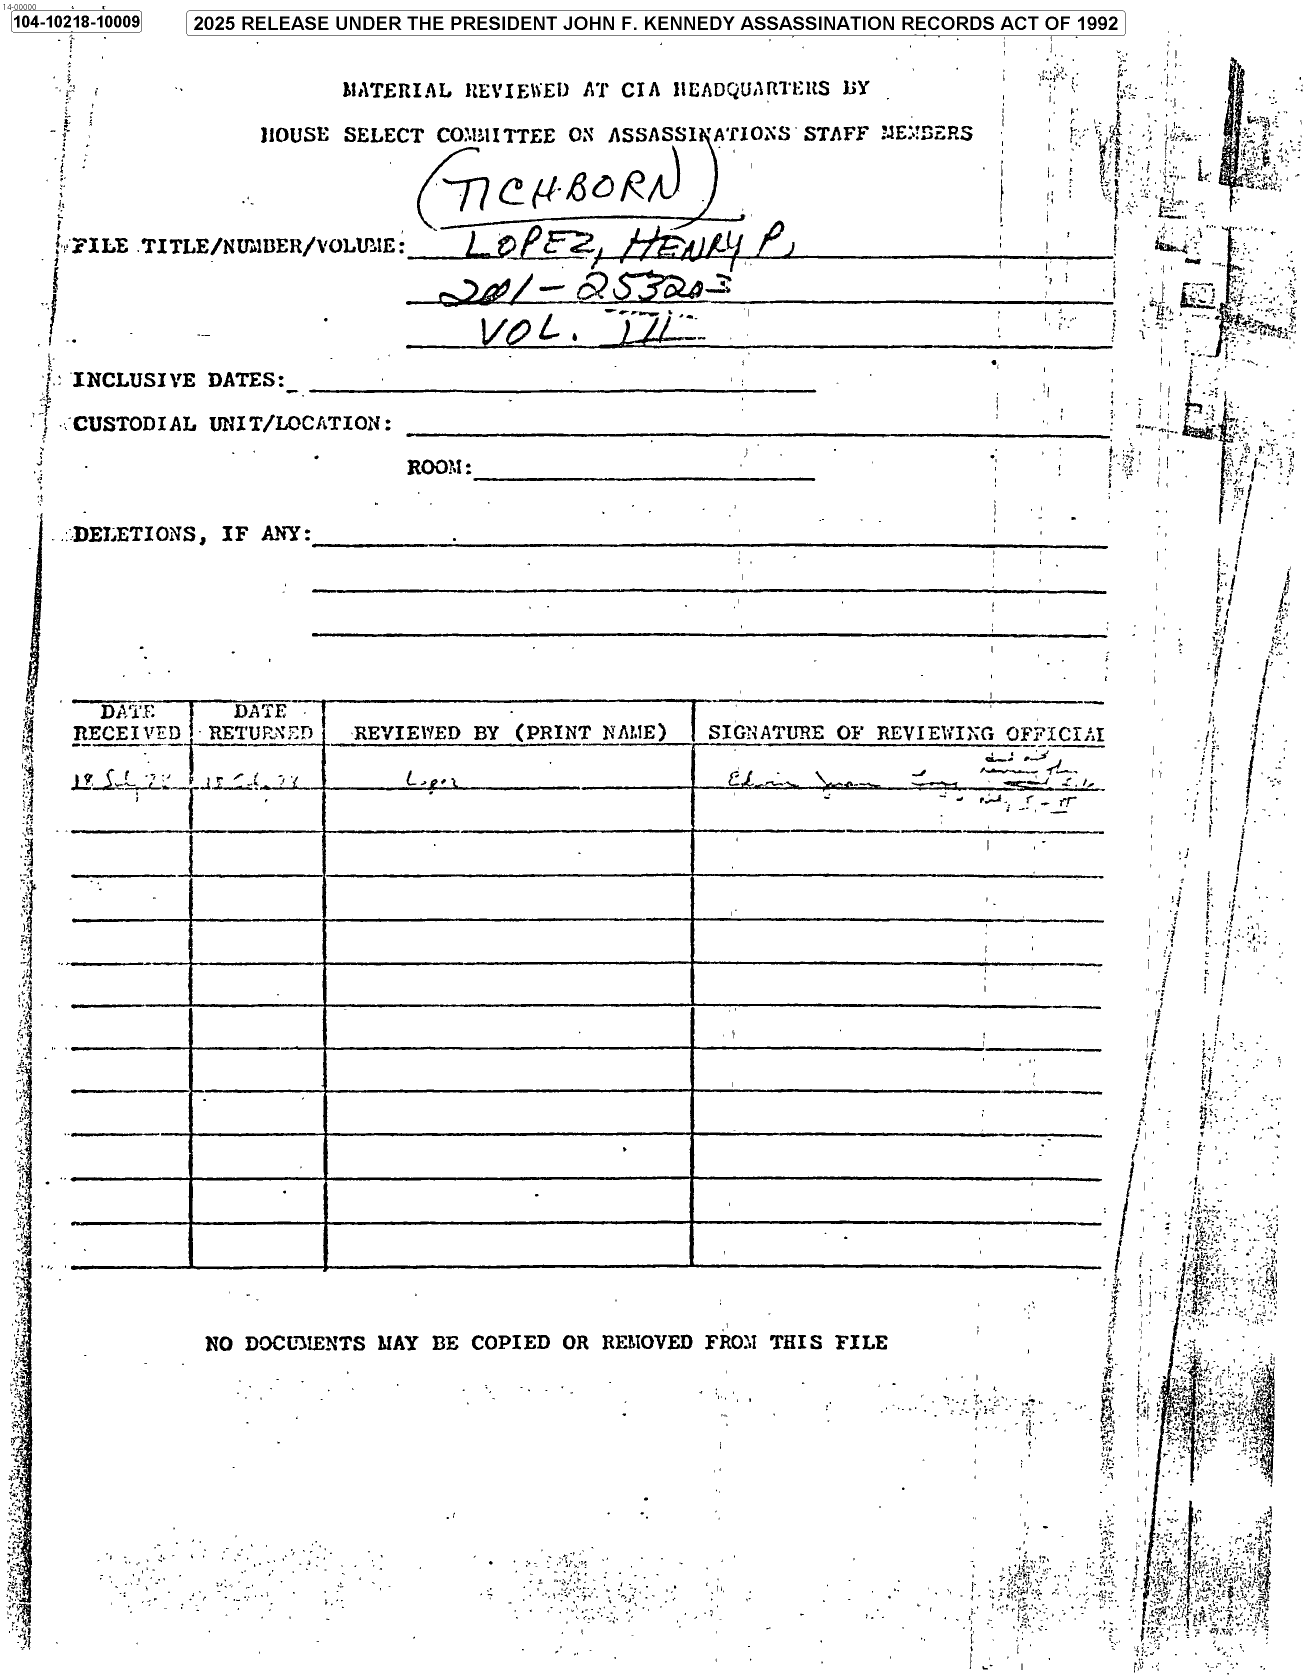 14-00000
104-10218-10009
2025 RELEASE UNDER THE PRESIDENT JOHN F. KENNEDY ASSASSINATION RECORDS ACT OF 1992
MATERIAL REVIEWED AT CIA HEADQUARTERS BY
HOUSE SELECT COMMITTEE ON ASSASSINATIONS STAFF MEMBERS
(TICHBORN)
FILE TITLE/NUMBER/VOLUME: LOPEZ, HENRY P,
201-253203
VOL. III
INCLUSIVE DATES:
CUSTODIAL UNIT/LOCATION:
ROOM:
DELETIONS, IF ANY:
DATE RECEIVED
DATE RETURNED
REVIEWED BY (PRINT NAME)
SIGNATURE OF REVIEWING OFFICIAL
18
Lopez
Edwin Juan
I - II
NO DOCUMENTS MAY BE COPIED OR REMOVED FROM THIS FILE